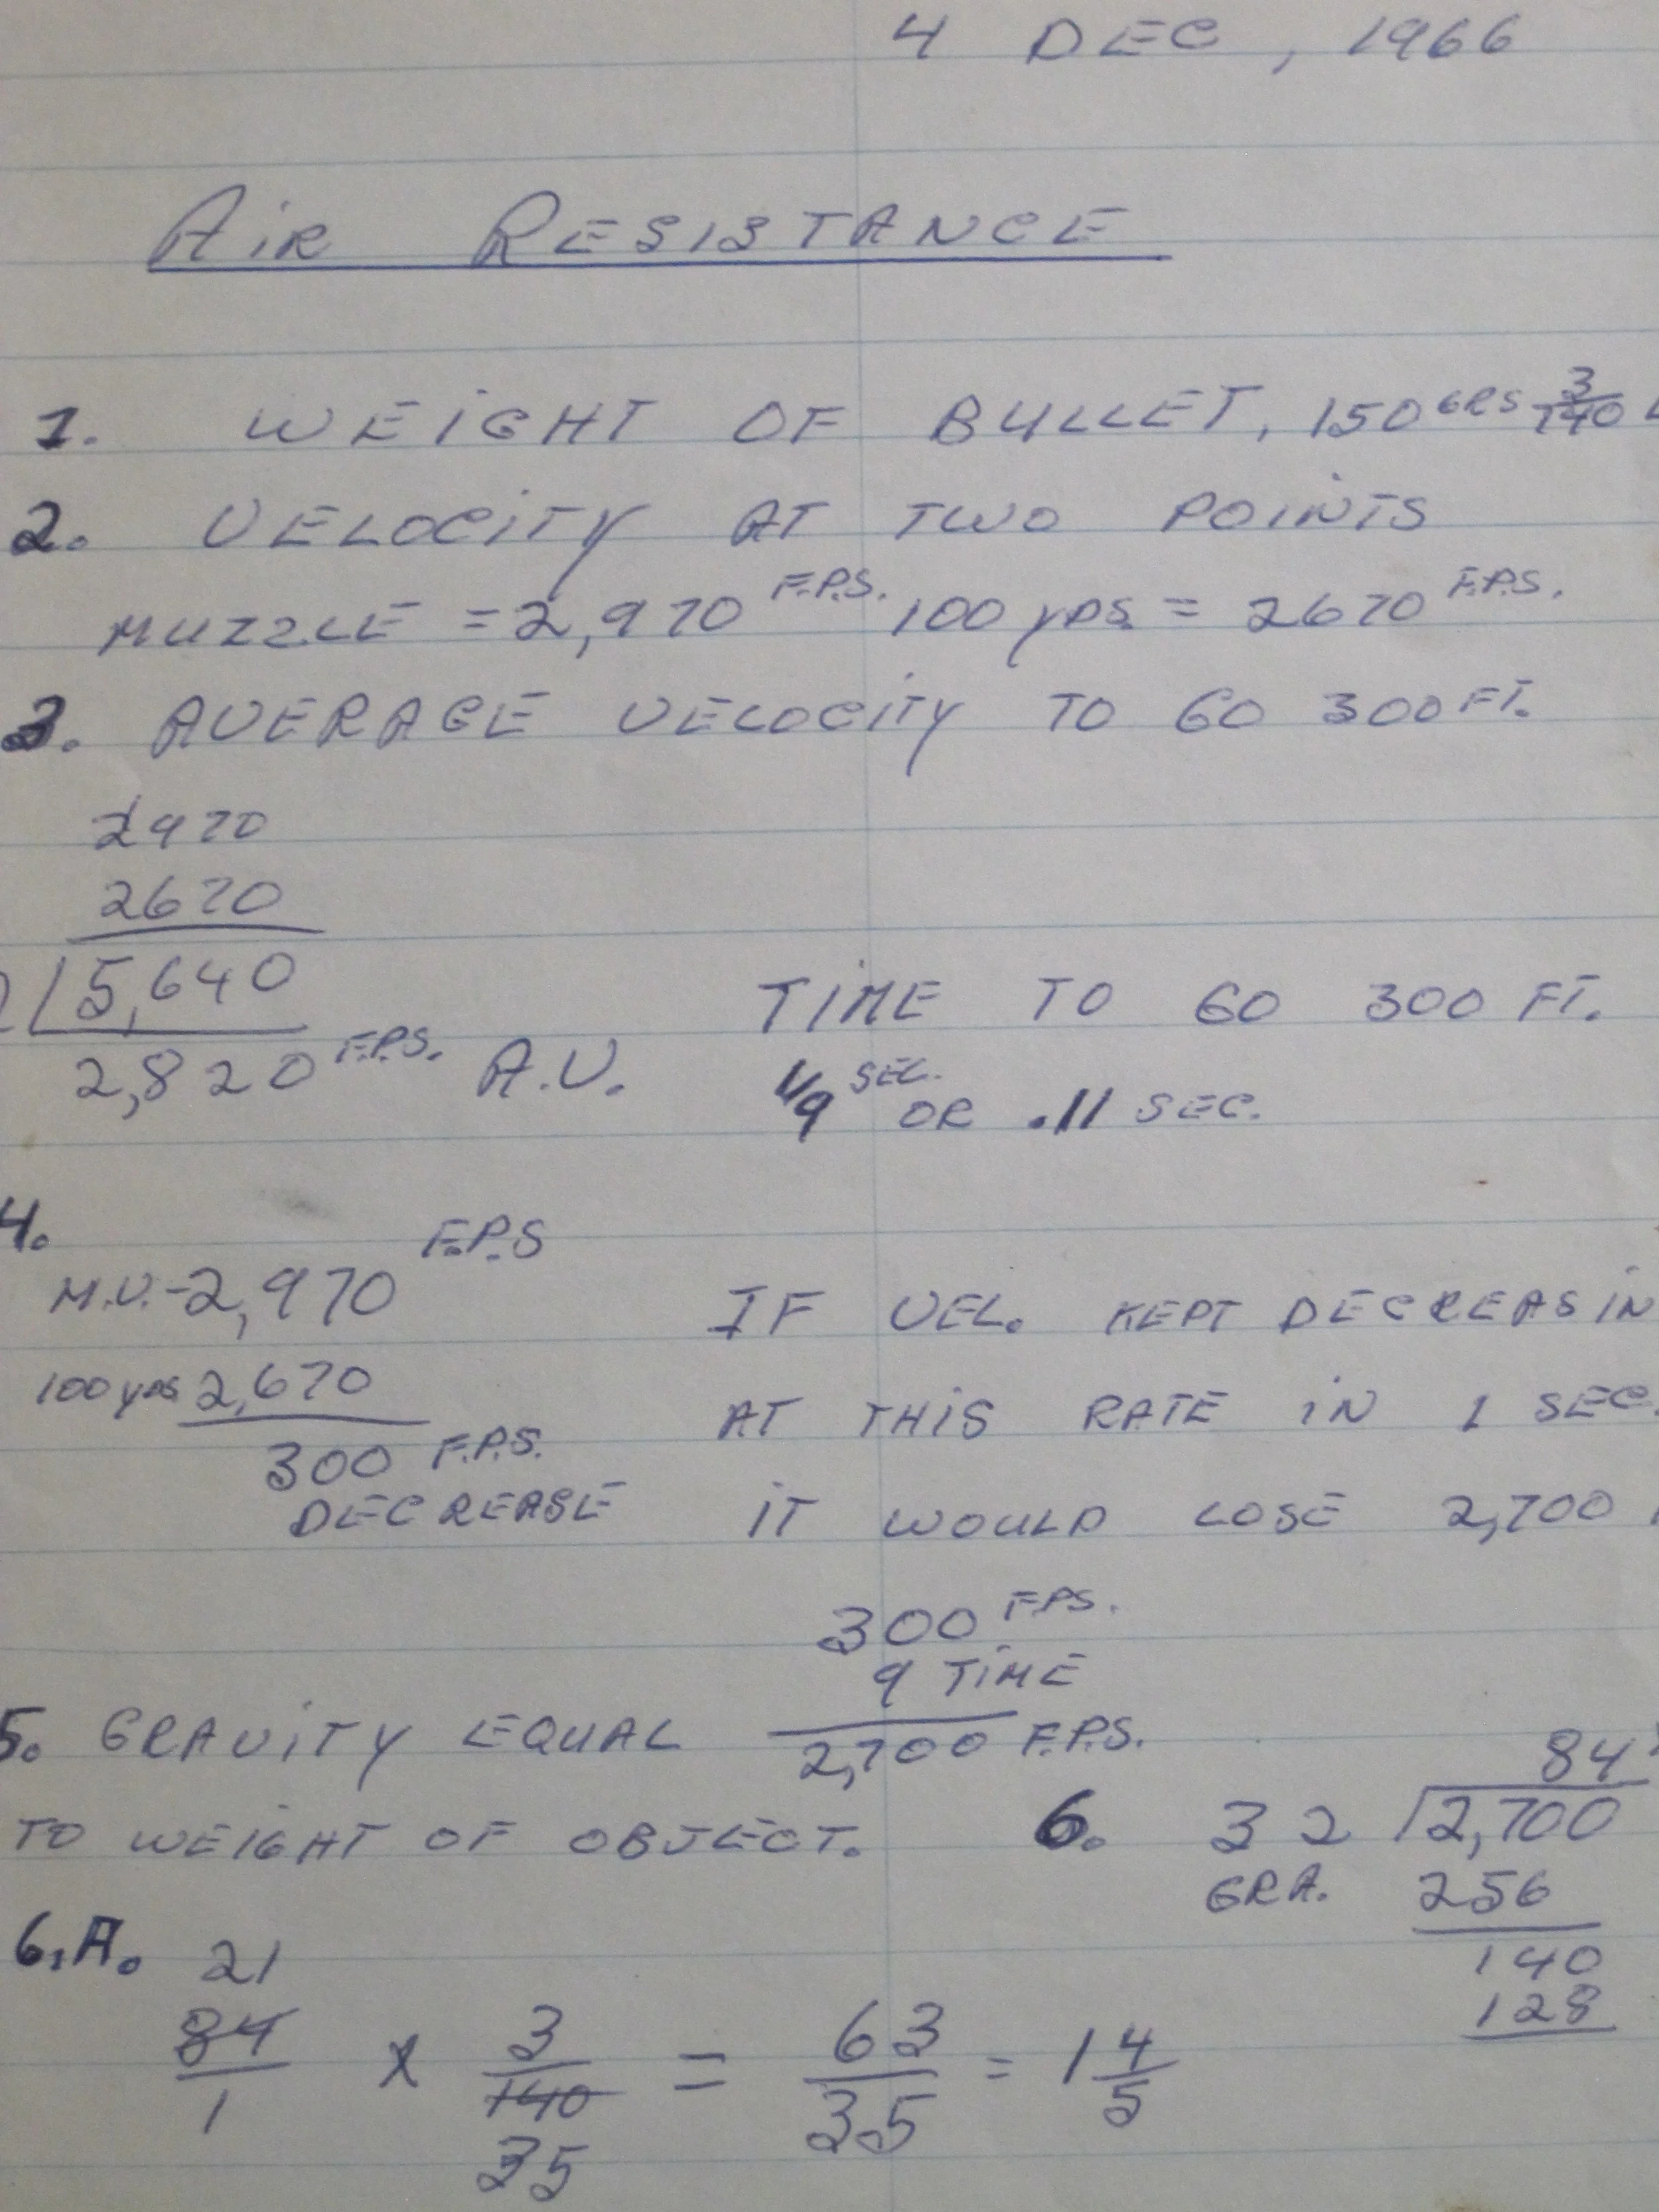 4 DEC, 1966
AIR RESISTANCE
1. WEIGHT OF BULLET, 150 GRS 3/140
2. VELOCITY AT TWO POINTS
MUZZLE = 2,970 F.P.S. 100 YDS. = 2670 F.P.S.
3. AVERAGE VELOCITY TO GO 300 FT.
2970
2670
5,640
2,820 F.P.S. A.V.
TIME TO GO 300 FT.
1/9 SEC. OR .11 SEC.
4.
M.V. - 2,970 F.P.S
100 YDS 2,670
300 F.P.S.
DECREASE
IF VEL. KEPT DECREASIN
AT THIS RATE IN 1 SEC.
IT WOULD LOSE 2,700
300 F.P.S.
9 TIME
2,700 F.P.S.
5. GRAVITY EQUAL
TO WEIGHT OF OBJECT.
6.
84
32 √2,700
GRA. 256
140
128
6.A. 21
84/1 x 3/140 = 63/35 = 1 4/5
35